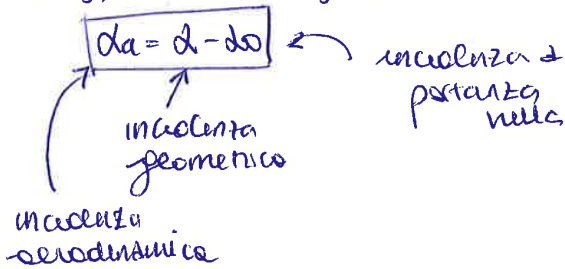 αa = α - α0
incidenza di
portanza
nulla
incidenza
geometrica
incidenza
aerodinamica